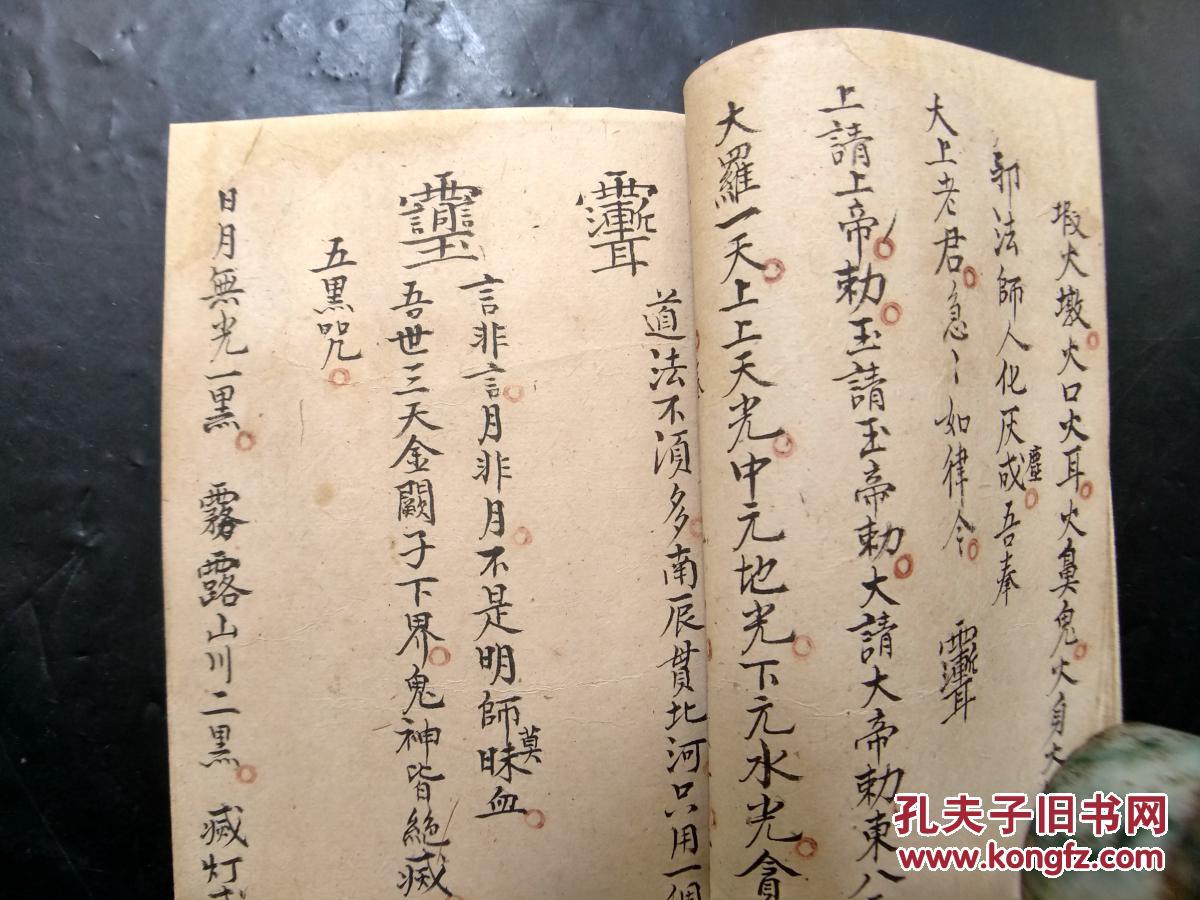 火墩火口火耳火鼻鬼火自大
邪法師人化灰成塵吾奉
大上老君急〻如律令
上請上帝勅玉請玉帝勅大請大帝勅東八
大羅一天上上天光中元地光下元水光貪
道法不須多南辰貫北河只用一個
言非言月非月不是明師莫眛血
吾世三天金闕子下界鬼神皆絕滅
五黑咒
日月無光一黑 霧露山川二黑 滅灯
孔夫子旧书网
www.kongfz.com